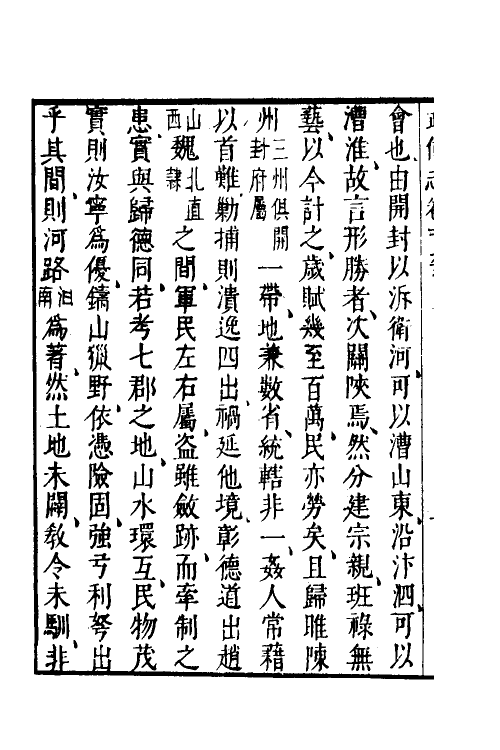 會也由開封以泝衛河可以漕山東沿汴泗可以
漕淮故言形勝者次關陜焉然分建宗親班祿無
藝以今計之歲賦幾至百萬民亦勞矣且歸睢陳
州三州俱開封府屬一帶地兼數省統轄非一姦人常藉
以首難勦捕則潰逸四出禍延他境彰德道出趙
山西魏北直隸之間軍民左右屬盜雖斂跡而牽制之
患實與歸德同若考七郡之地山水環互民物茂
實則汝寧爲優鑄山獵野依憑險固強弓利弩出
乎其間則河路南爲著然土地未闢教令未馴非